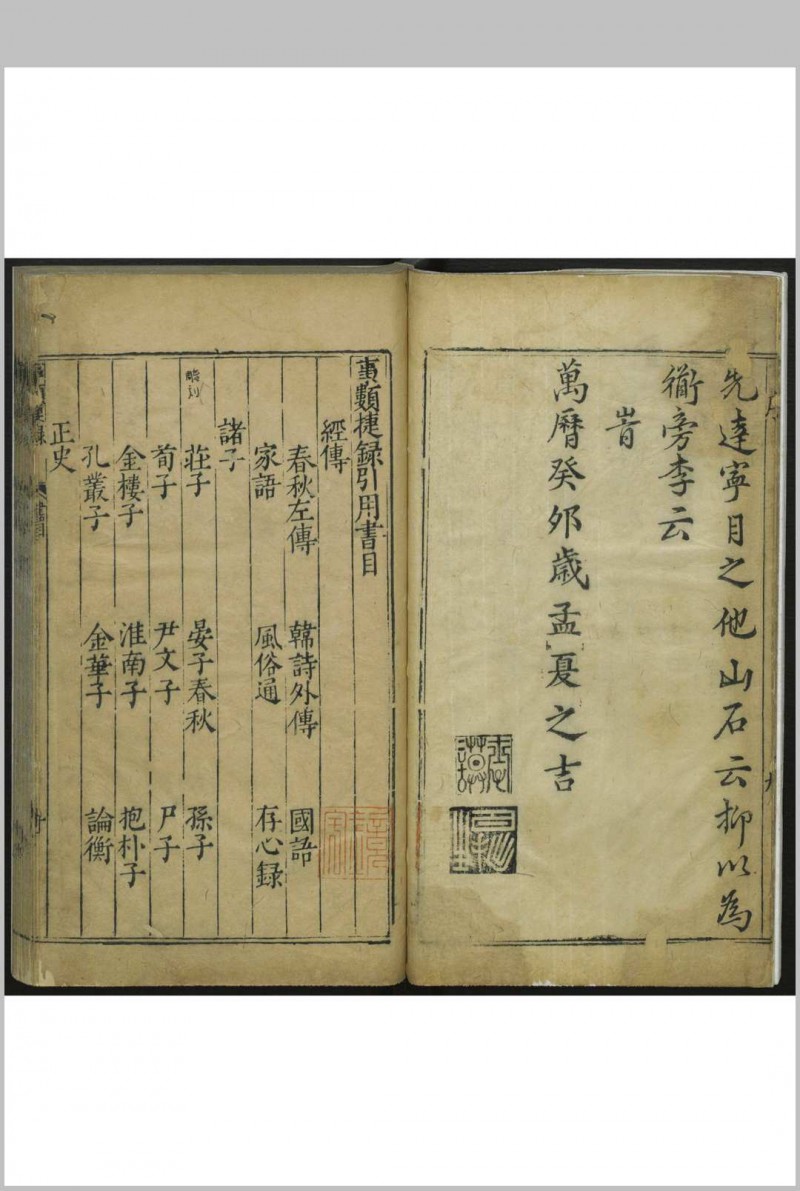 先達寧目之他山石云抑以為
衟旁李云
旹
萬曆癸夘歳孟夏之吉
事類捷録引用書目
經傳
春秋左傳 韓詩外傳 國語
家語 風俗通 存心録
諸子
莊子 晏子春秋 孫子
荀子 尹文子 尸子
金樓子 淮南子 抱朴子
孔叢子 金華子 論衡
正史